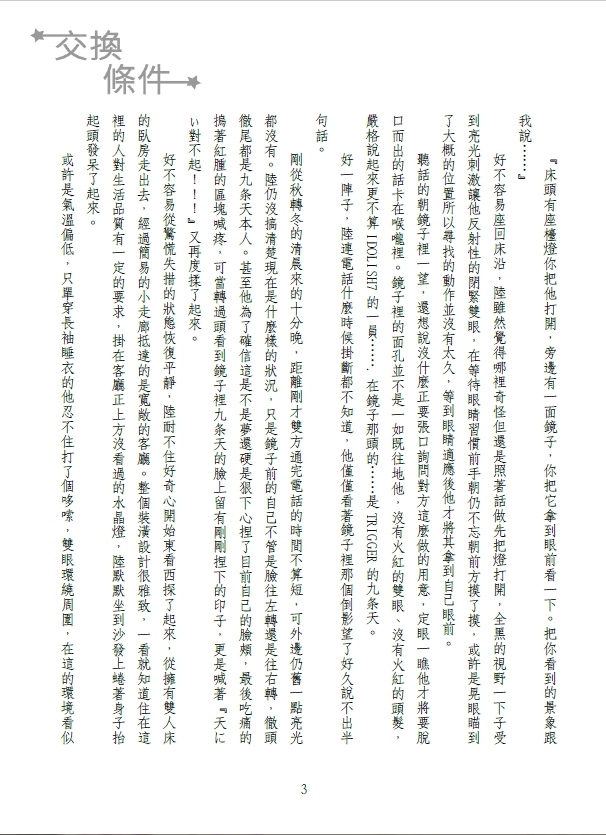 交換
條件
『床頭有座檯燈你把他打開，旁邊有一面鏡子，你把它拿到眼前看一下。把你看到的景象跟
我說……』
好不容易座回床沿，陸雖然覺得哪裡奇怪但還是照著話做先把燈打開，全黑的視野一下子受
到亮光刺激讓他反射性的閉緊雙眼，在等待眼睛習慣前手朝仍不忘朝前方摸了摸，或許是晃眼瞄到
了大概的位置所以尋找的動作並沒有太久，等到眼睛適應後他才將其拿到自己眼前。
聽話的朝鏡子裡一望，還想說沒什麼正要張口詢問對方這麼做的用意，定眼一瞧他才將要脫
口而出的話卡在喉嚨裡。鏡子裡的面孔並不是一如既往地他，沒有火紅的雙眼、沒有火紅的頭髮，
嚴格說起來更不算 IDOLISH7 的一員……. 在鏡子那頭的……是 TRIGGER 的九条天。
好一陣子，陸連電話什麼時候掛斷都不知道，他僅僅看著鏡子裡那個倒影望了好久說不出半
句話。
剛從秋轉冬的清晨來的十分晚，距離剛才雙方通完電話的時間不算短，可外邊仍舊一點亮光
都沒有。陸仍沒搞清楚現在是什麼樣的狀況，只是鏡子前的自己不管是臉往左轉還是往右轉，徹頭
徹尾都是九条天本人。甚至他為了確信這是不是夢還硬是狠下心捏了目前自己的臉頰，最後吃痛的
摀著紅腫的區塊喊疼，可當轉過頭看到鏡子裡九条天的臉上留有剛剛捏下的印子，更是喊著『天に
い對不起！！！』又再度揉了起來。
好不容易從驚慌失措的狀態恢復平靜，陸耐不住好奇心開始東看西探了起來，從擁有雙人床
的臥房走出去，經過簡易的小走廊抵達的是寬敞的客廳。整個裝潢設計很雅致，一看就知道住在這
裡的人對生活品質有一定的要求，掛在客廳正上方沒看過的水晶燈，陸默默坐到沙發上蜷著身子抬
起頭發呆了起來。
或許是氣溫偏低，只單穿長袖睡衣的他忍不住打了個哆嗦，雙眼環繞周圍，在這的環境看似
3